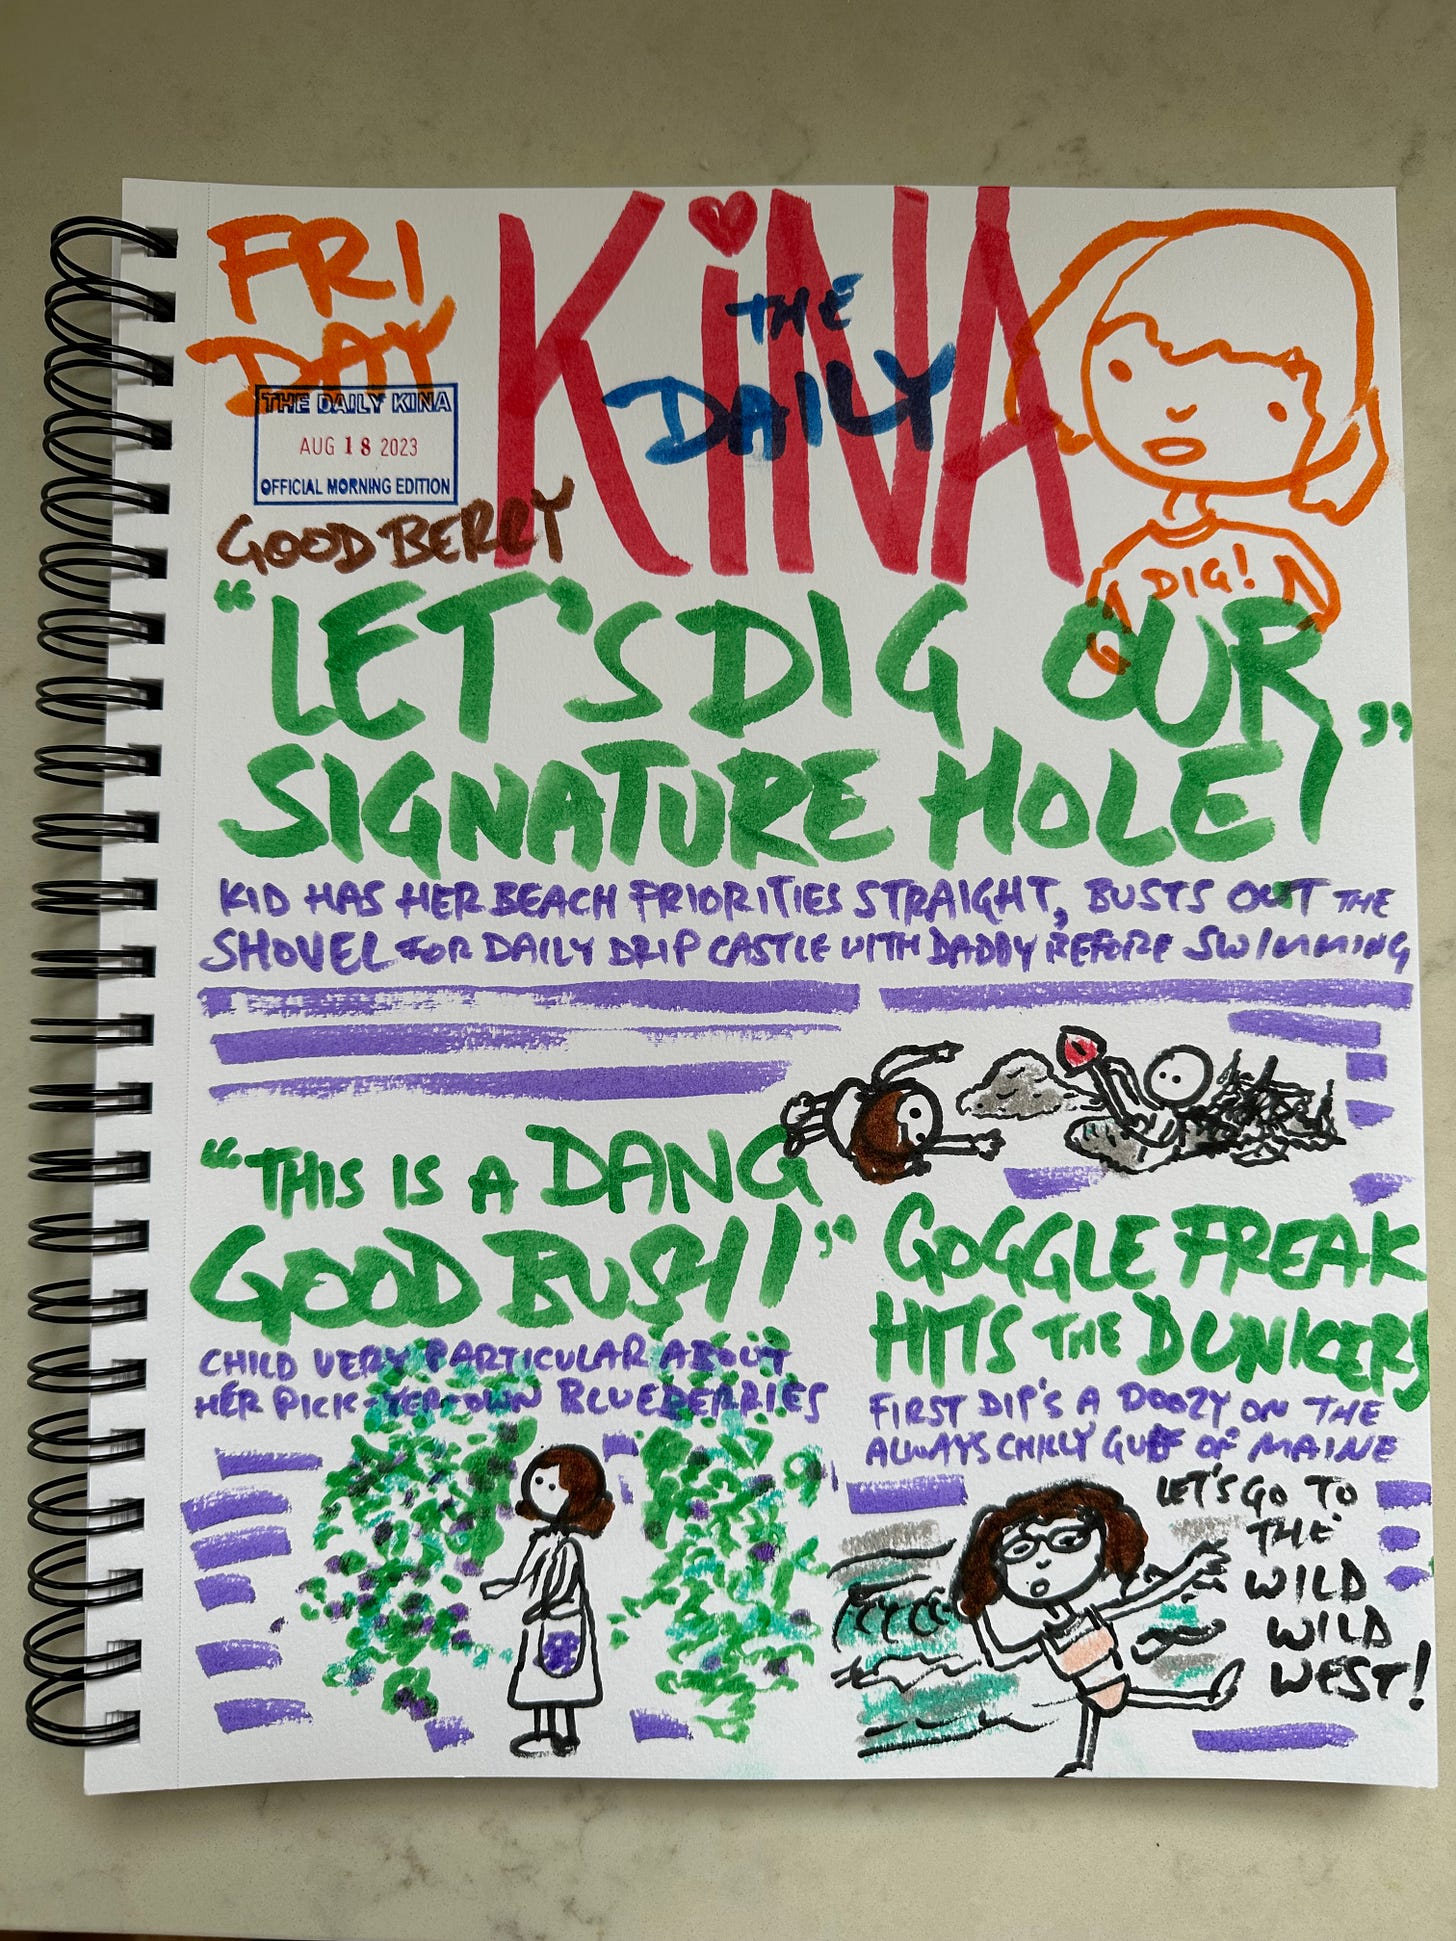 FRI
DAY
THE DAILY KINA
AUG 18 2023
OFFICIAL MORNING EDITION
GOOD BERRY
KiNA
THE
DAILY
DIG!
"LET'S DIG OUR
SIGNATURE HOLE!"
KID HAS HER BEACH PRIORITIES STRAIGHT, BUSTS OUT THE
SHOVEL FOR DAILY DRIP CASTLE WITH DADDY BEFORE SWIMMING
"THIS IS A DANG
GOOD BUSH!"
CHILD VERY PARTICULAR ABOUT
HER PICK-YER-OWN BLUEBERRIES
GOGGLE FREAK
HITS THE DUNKERS
FIRST DIP'S A DOOZY ON THE
ALWAYS CHILLY GULF OF MAINE
LET'S GO TO
THE
WILD
WILD
WEST!